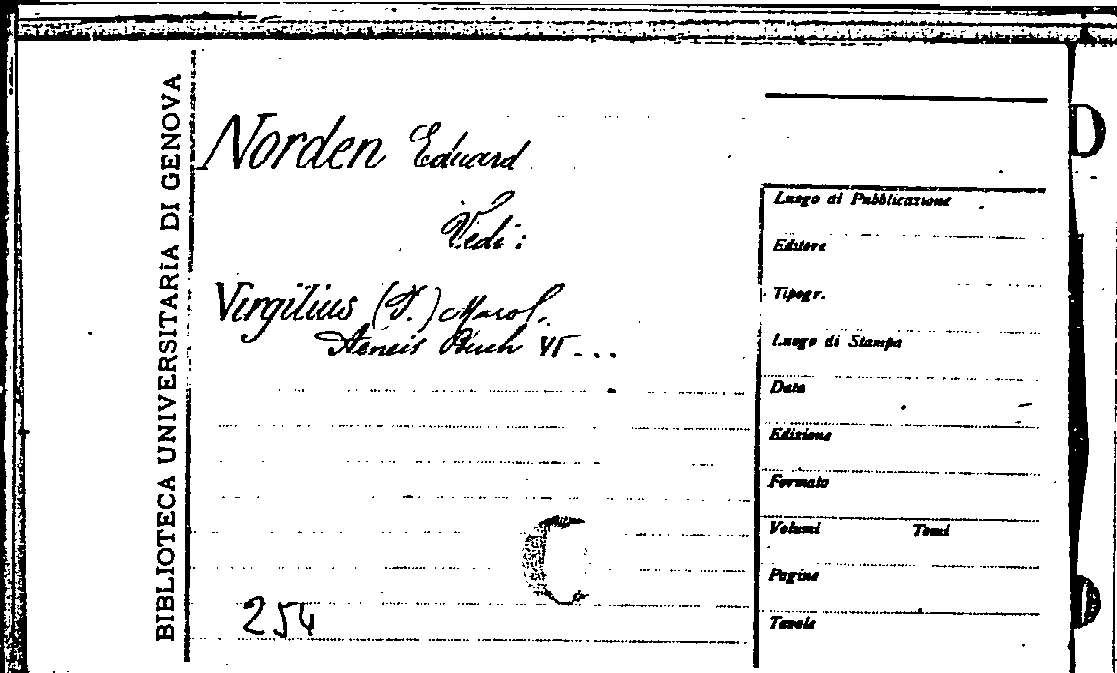 BIBLIOTECA UNIVERSITARIA DI GENOVA
Norden Eduard
Vedi:
Virgilius (P.) Maro.
Aeneis Buch VI...
254
Luogo di Pubblicazione
Editore
Tipogr.
Luogo di Stampa
Data
Edizione
Formato
Volumi Tomi
Pagine
Tavole